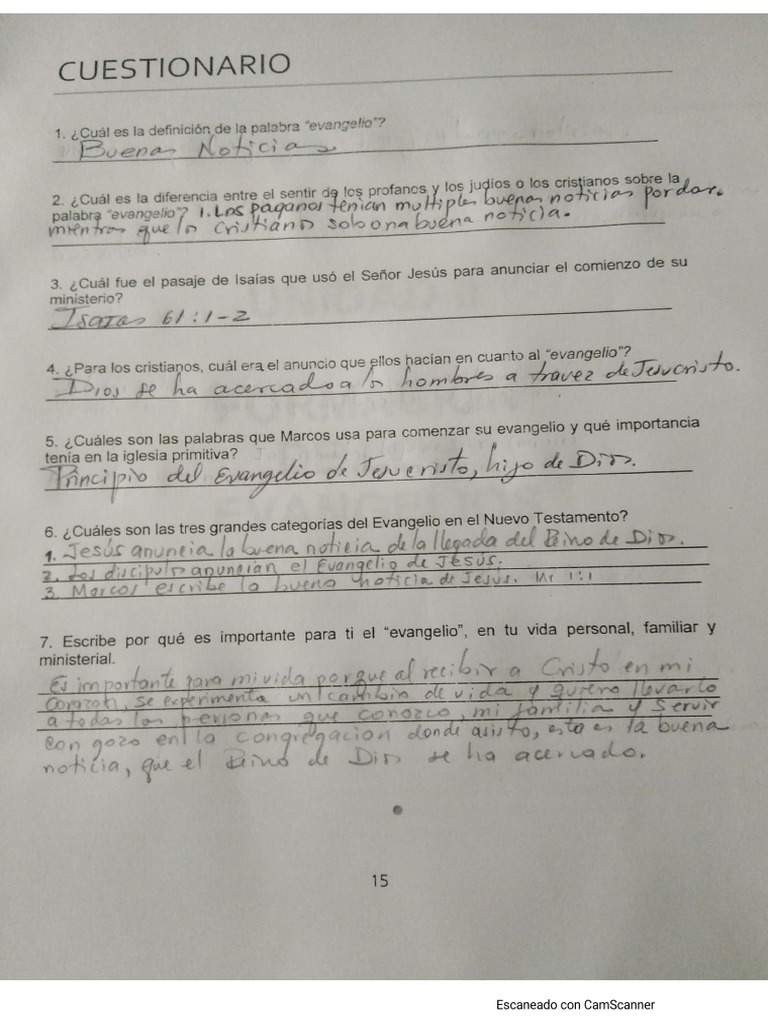 CUESTIONARIO
1. ¿Cuál es la definición de la palabra "evangelio"?
Buenas Noticias
2. ¿Cuál es la diferencia entre el sentir de los profanos y los judíos o los cristianos sobre la
palabra "evangelio? 1. Los paganos tenian multiples buenas noticias por dar.
mientras que los Cristianos solo una buena noticia.
3. ¿Cuál fue el pasaje de Isaías que usó el Señor Jesús para anunciar el comienzo de su
ministerio?
Isaias 61:1-2
4. ¿Para los cristianos, cuál era el anuncio que ellos hacían en cuanto al "evangelio"?
Dios se ha acercado a los hombres a travez de Jesucristo.
5. ¿Cuáles son las palabras que Marcos usa para comenzar su evangelio y qué importancia
tenía en la iglesia primitiva?
Principio del Evangelio de Jesucristo, hijo de Dios.
6. ¿Cuáles son las tres grandes categorías del Evangelio en el Nuevo Testamento?
1. Jesús anuncia la buena noticia de la llegada del Reino de Dios.
2. Los discipulos anuncian el Evangelio de Jesús.
3. Marcos escribe la buena noticia de Jesús. Mr 1:1
7. Escribe por qué es importante para ti el "evangelio", en tu vida personal, familiar y
ministerial.
Es importante para mi vida porque al recibir a Cristo en mi
Corazon, se experimenta un cambio de vida y quiero llevarlo
a todas las personas que conozco, mi familia y Servir
con gozo en la congregacion donde asisto, esta es la buena
noticia, que el Reino de Dios se ha acercado.
15
Escaneado con CamScanner